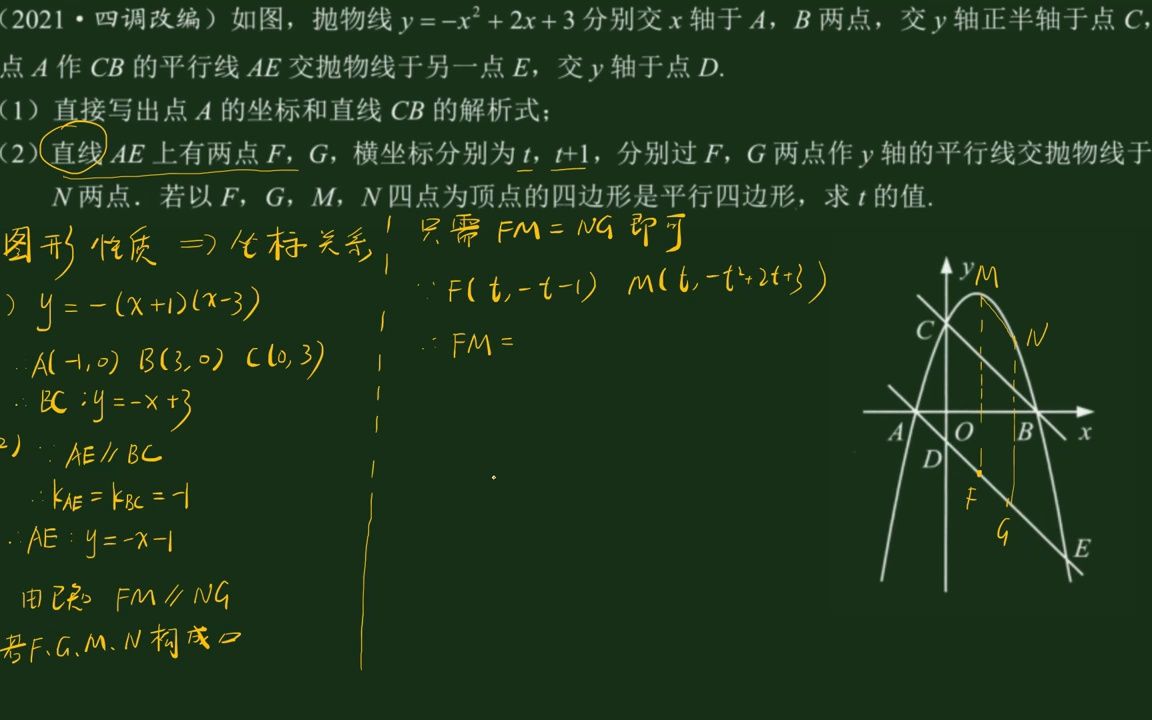 (2021·四调改编)如图,抛物线 y=-x²+2x+3 分别交 x 轴于 A,B 两点,交 y 轴正半轴于点 C,
点 A 作 CB 的平行线 AE 交抛物线于另一点 E,交 y 轴于点 D.
(1)直接写出点 A 的坐标和直线 CB 的解析式;
(2)直线 AE 上有两点 F,G,横坐标分别为 t,t+1,分别过 F,G 两点作 y 轴的平行线交抛物线于
N 两点.若以 F,G,M,N 四点为顶点的四边形是平行四边形,求 t 的值.
图形性质 ⇒ 坐标关系
) y=-(x+1)(x-3)
∴A(-1,0) B(3,0) C(0,3)
∴BC:y=-x+3
2) ∵AE∥BC
∴k_AE=k_BC=-1
∴AE:y=-x-1
由已知 FM∥NG
若F、G、M、N构成▱
只需 FM=NG 即可
∵F(t,-t-1) M(t,-t²+2t+3)
∴FM=
y
M
C
N
A
O
B
x
D
F
G
E